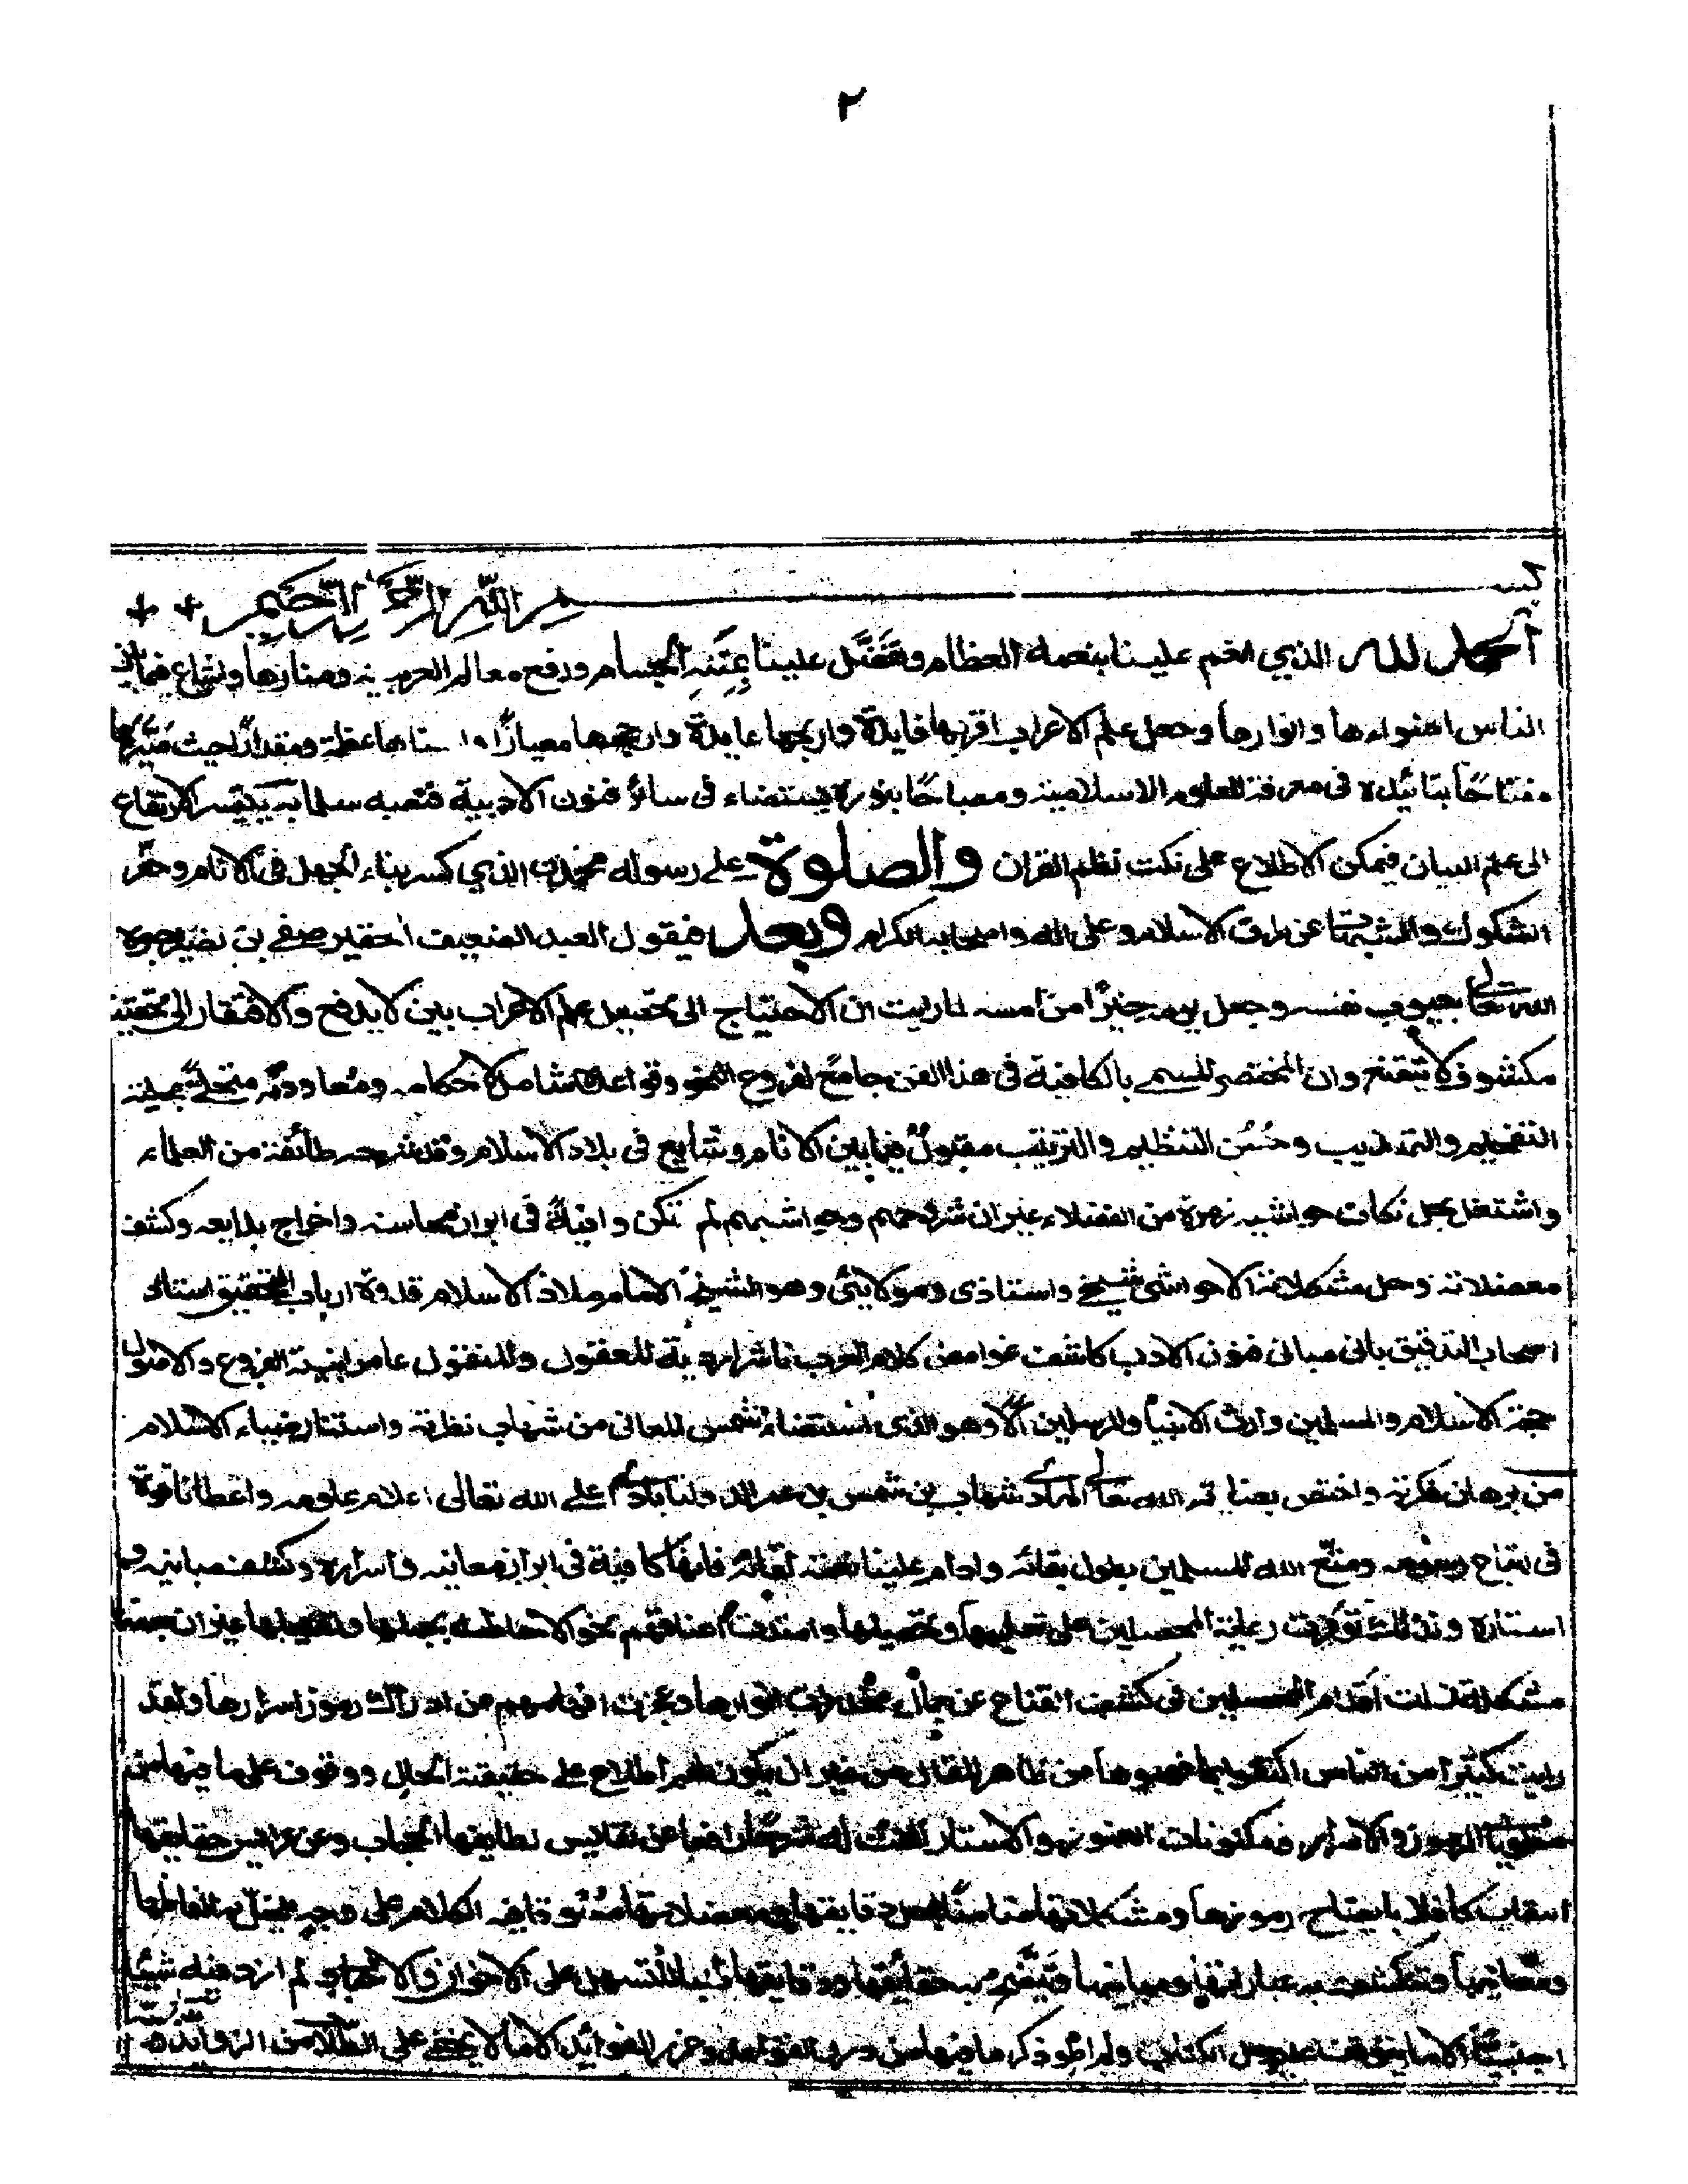 ٢
بسم الله الرحمن الرحيم
الحمد لله الذي انعم علينا بنعمه العظام وتفضل علينا بمننه الجسام ورفع معالم العربية ومنارها وشاع فيما بين
الناس اضواءها وانوارها وجعل علم الاعراب اقربها فايدة واربحها عايدة وارجحها معيارًا و عظمة ومقدارًا حيث صيرها
مفتاحًا بتائيده في معرفة العلوم الاسلامية ومصباحًا بنوره يستضاء في سائر فنون الادبية فنصبه سلما به يتيسر الارتقاع
الى علم البيان فيمكن الاطلاع على نكت نظم القران والصلوة على رسوله محمد الذي كسر بناء الجهل في الانام وجر
الشكوك والشبهات عن طرق الاسلام وعلى اله واصحابه الكرام وبعد فيقول العبد الضعيف احقير صفي بن نصير
الله تعالى بعيوب نفسه وجعل يومه خيرًا من امسه لما رايت ان الاحتياج الى تحصيل علم الاعراب بين لا يدفع والافتقار الى
مكشوف لا يتقنع وان المختصر المسمى بالكافية في هذا الفن جامع لفروع النحو وقواعده شامل لاحكامه ومعاودته متحلية بحلية
التفهيم والتهذيب وحسن التنظيم والترتيب مقبول فيما بين الانام وشايع في بلاد الاسلام وقد شرحه طائفة من العلماء
واشتغل بحل نكات حواشيه زمرة من الفضلاء غير ان شروحهم وحواشيهم لم تكن وافية في ابراز محاسنه واخراج بدايعه وكشف
معضلاته وحل مشكلاته الا حواشي شيخي واستاذي ومولائي وهو الشيخ الامام ملاذ الاسلام قدوة ارباب التحقيق استاد
اصحاب التدقيق باني مباني فنون الادب كاشف غوامض كلام العرب ناشر للعقول والمنقول عامر ابنية الفروع والاصول
حجة الاسلام والمسلمين وارث الانبياء والمرسلين الا وهو الذي استضاء شمس المعاني من شهاب نظرته واستنار ضياء الاسلام
من برهان فكرته واختص بعناية الله تعالى الهادي شهاب بن شمس بن عمر الدولتابادي اعلى الله تعالى اعلام علومه واعطانا قوة
في اتباع رسومه ومتع الله المسلمين بطول بقائه وادام علينا نعمة لقائه فانها كافية في ابراز معانيه واسراره وكشف مبانيه و
استاره ولذلك توفرت رغبة المحصلين على تعليمها وتحصيلها وامتدت اعناقهم نحو الاحاطة بجملها وتفصيلها غير ان
مشكلة زلت اقدام في كشف القناع عن جمال انوارها وعجزت افهامهم من ادراك رموز اسرارها ولقد
رايت كثيرًا من الناس اكتفوا بما فهموها من ظاهر المقال من غير ان يكون لهم اطلاع على حقيقة الحال ووقوف على ما فيها من
الرموز والاسرار ومكنونات والاستار كتبت له شرحًا رافعا عن نفايس لطايفها الحجاب وعن عرايس حقايقها
النقاب كافلا بايضاح رموزها ومشكلاتها متضمنًا دقايقها ومعضلاتها الكلام على وجه الفاظها
ومعانيها وتنكشف به عباراتها ومبانيها ويتضح به حقائقها ودقايقها للتسهيل على الاخوان والاحباب ولم ازد فيه شيئًا
اجنبيًا الا ما يتوقف عليه حل الكتاب ولم اطو ذكر ما فيها من درر القواعد وغرر الفوائد الا ما لا يخفى على الطلاب من الزوائد